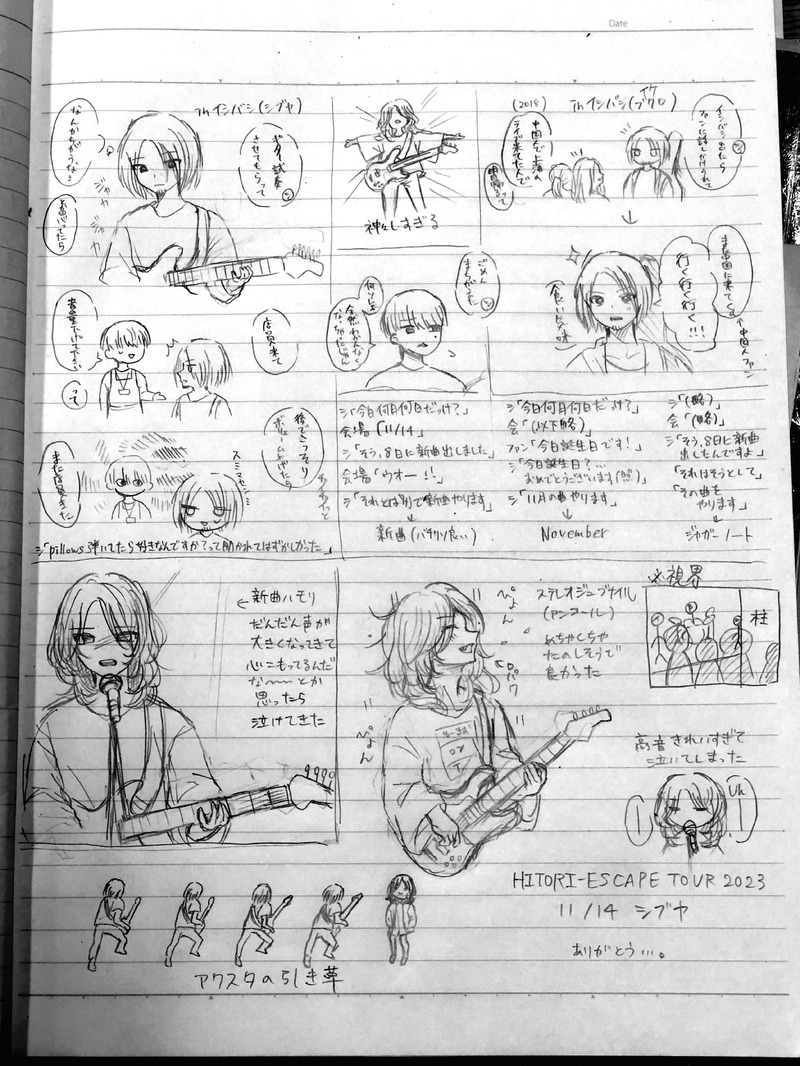 Date
in イシバシ(シブヤ)
なんかちがうな…
ギター試奏
させてもらって
ジャッ
ジャカ
店員来て
音量下げて下さい
って
後でこっそり
ボリューム上げたら
また店員きた
スミマセン…
シ「pillows弾いてたら好きなんですか?って聞かれてはずかしかった」
神々しすぎる
(2018)
in イシバシ(イケブクロ)
イシバシ出たら
ファンに話しかけられて
中国公演
↓
また中国に来てください
中国人ファン
行く行く行く!!!
食い気味
ごめん
まちがえた
シ「今日何月何日だっけ?」
会場「11/14」
シ「そう、8日に新曲出しました」
会場「ウオー!!」
シ「それとは別で新曲やります」
↓
新曲(バチクソ良い)
シ「今日何月何日だっけ?」
会「(以下略)」
ファン「今日誕生日です!」
シ「今日誕生日?…
おめでとうございます(照)」
シ「11月の曲やります」
↓
November
シ「(略)」
会「(略)」
シ「そう、8日に新曲
出したんですよ」
「それはそうとして」
「その曲を
やります」
↓
ジャガーノート
←新曲ハモり
だんだん声が
大きくなってきて
心こもってるんだ
な〜〜とか
思ったら
泣けてきた
ステレオジュブナイル
(アンコール)
めちゃくちゃ
たのしそうで
良かった
ぴょん
ぴょん
パク
※視界
柱
高音きれいすぎて
泣いてしまった
Uh
HITORI-ESCAPE TOUR 2023
11/14 シブヤ
ありがとう…。
アクスタの引き革